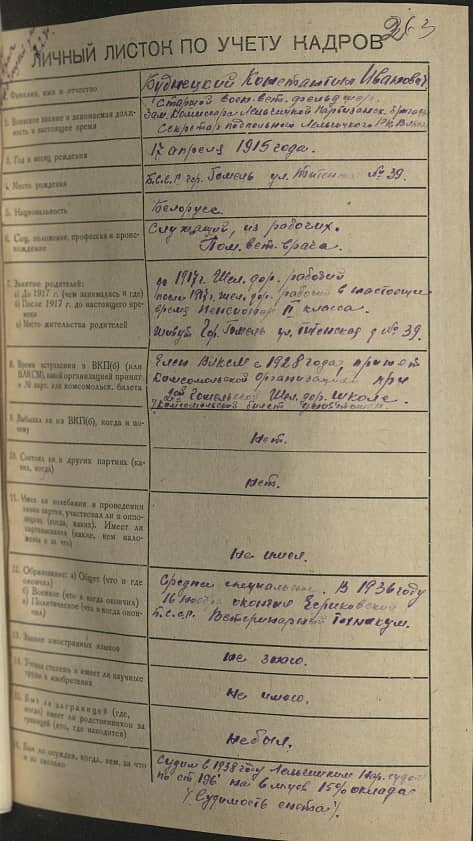 283
ЛИЧНЫЙ ЛИСТОК ПО УЧЕТУ КАДРОВ
1. Фамилия, имя и отчество
Будницкий Константин Иванович
2. Воинское звание и занимаемая должность в настоящее время
Старший воен. вет. фельдшер.
Зам. Комиссара Лельчицкой Партизанск. бригады
Секретар подпольного Лельчицкого РК. ВЛКСМ
3. Год и месяц рождения
17 апреля 1915 года.
4. Место рождения
Б.С.С.Р. гор. Гомель ул. № 39.
5. Национальность
Белорусс
6. Соц. положение, профессия и происхождение
Служащий, из рабочих.
Пом. вет. врача.
7. Занятие родителей:
а) До 1917 г. (чем занимались и где)
б) После 1917 г. до настоящего времени
в) Место жительства родителей
до 1917 г. Жел. дор. рабочий
после 1917 г. жел. дор. рабочий в настоящее
время Пенсионер II класса.
Живут Гор. Гомель ул. д № 39.
8. Время вступления в ВКП(б) (или ВЛКСМ), какой организацией принят и № парт. или комсомольск. билета
Член ВЛКСМ с 1928 года, принят
Комсомольской Организацией при
Гомельской Жел. дор. школе.
Комсомольский билет
9. Выбывал ли из ВКП(б), когда и почему
Нет.
10. Состоял ли в других партиях (каких, когда)
Нет.
11. Имел ли колебания в проведении линии партии, участвовал ли в оппозициях (когда, каких). Имеет ли партвзыскания (какие, кем наложены и за что)
Не имел.
12. Образование: а) Общее (что и где окончил)
б) Военное (что и когда окончил)
в) Политическое (что и когда окончил)
Средне специальное. В 1936 году
окончил Чериковский
Б.С.С.Р. Ветеринарный Техникум.
13. Знание иностранных языков
Не знаю.
14. Ученая степень и имеет ли научные труды и изобретения
Не имею.
15. Был ли заграницей (где, когда) имеет ли родственников за границей (кто, где находится)
Не был.
16. Был ли осужден, когда, кем, за что и на сколько
Судим в 1938 году Лельчицким Нар. судом
по ст 196 на 6 м-цев 15% оклада
/Судимость снята/.